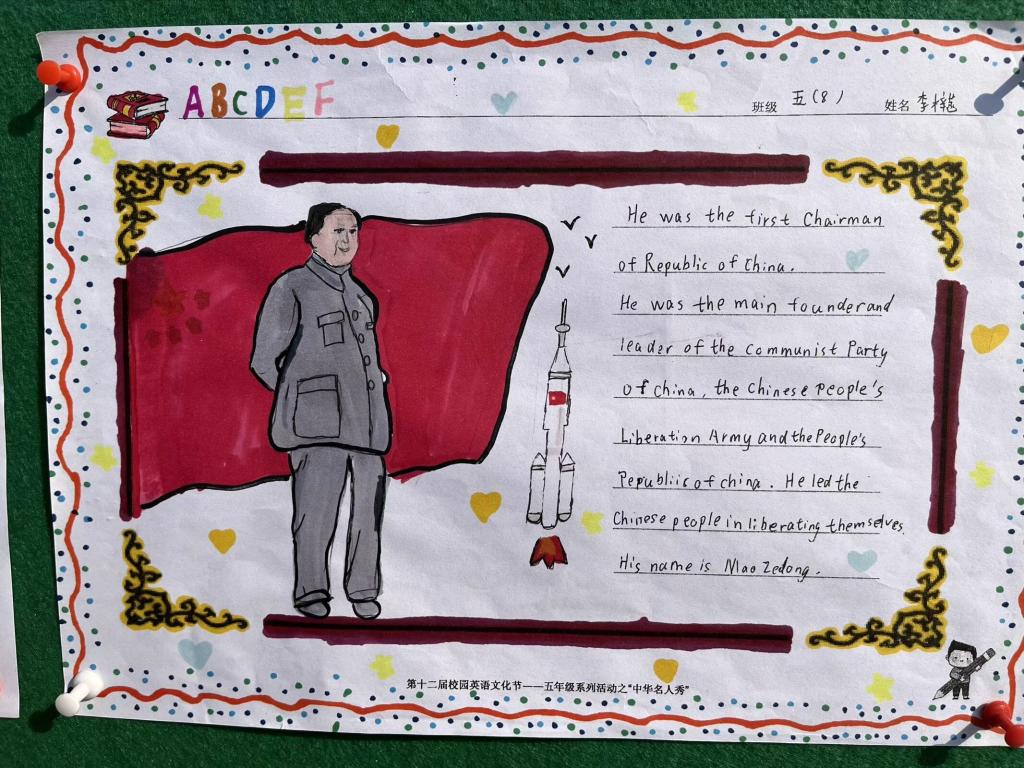 ABCDEF
班级 五(8) 姓名 李
He was the first Chairman
of Republic of China.
He was the main founder and
leader of the Communist Party
Of China, the Chinese People's
Liberation Army and the People's
Republiic of China. He led the
Chinese people in liberating themselves.
His name is Mao Zedong.
第十二届校园英语文化节——五年级系列活动之“中华名人秀”